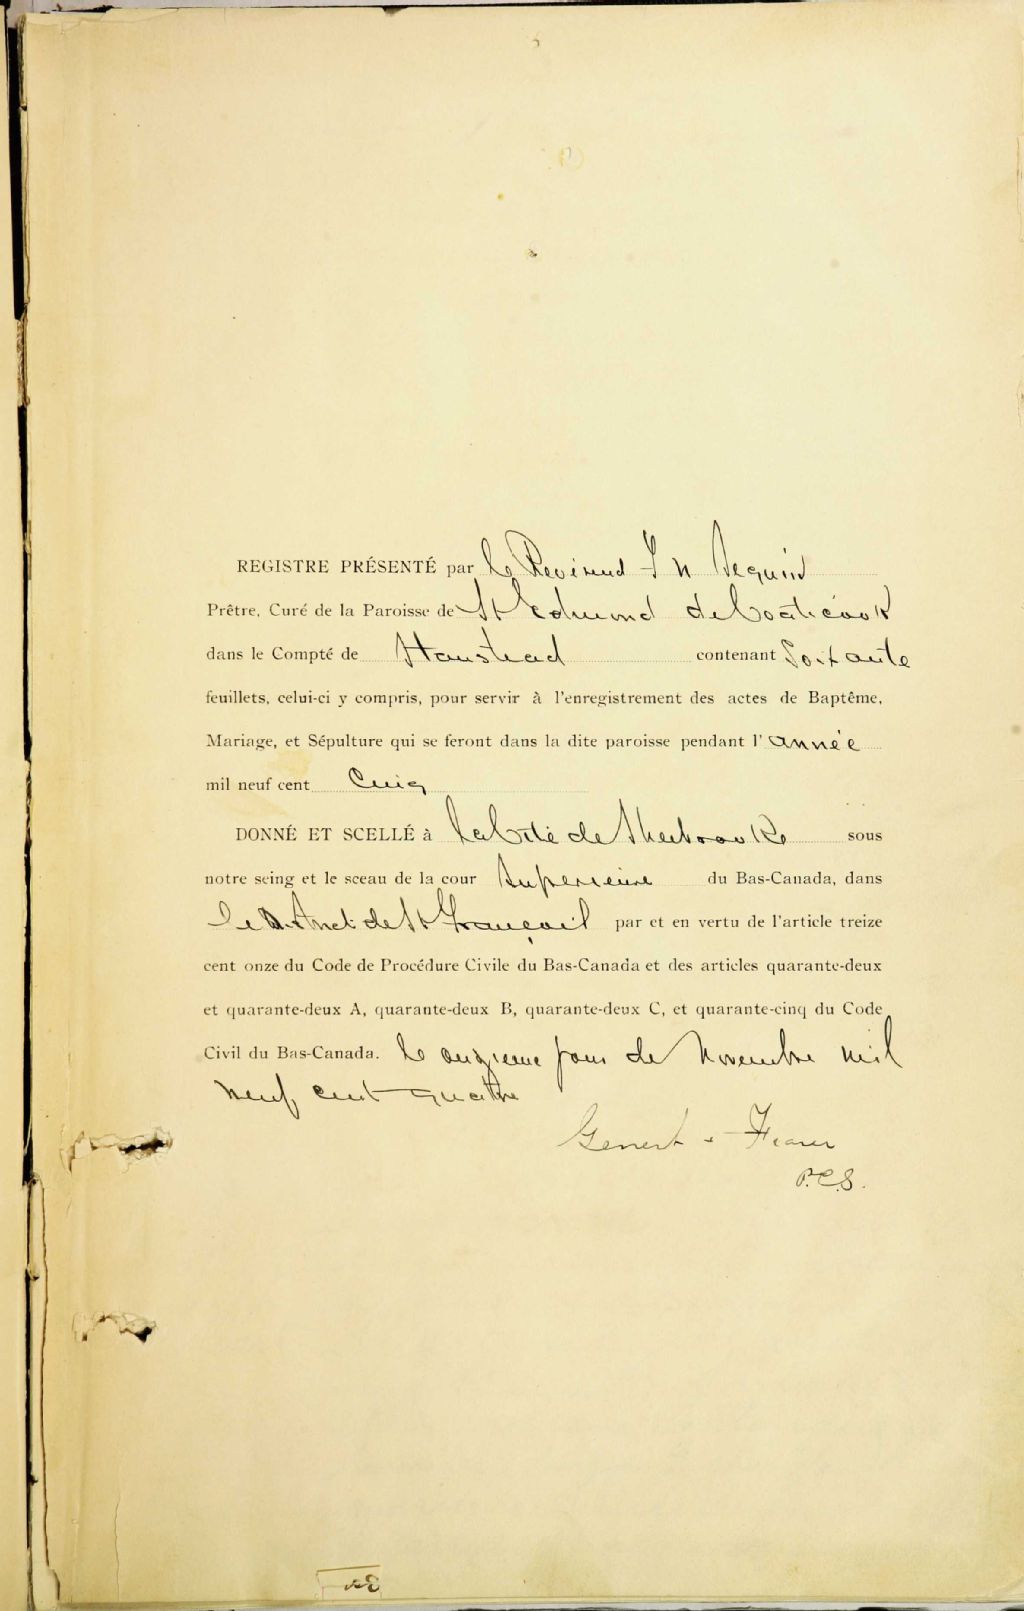 REGISTRE PRÉSENTÉ par le Révérend J N Seguin
Prêtre, Curé de la Paroisse de St Edmund de Coaticook
dans le Compté de Stanstead contenant Soixante
feuillets, celui-ci y compris, pour servir à l'enregistrement des actes de Baptême,
Mariage, et Sépulture qui se feront dans la dite paroisse pendant l'année
mil neuf cent Cinq
DONNÉ ET SCELLÉ à La Cité de Sherbrooke sous
notre seing et le sceau de la cour Supérieure du Bas-Canada, dans
le District de St François par et en vertu de l'article treize
cent onze du Code de Procédure Civile du Bas-Canada et des articles quarante-deux
et quarante-deux A, quarante-deux B, quarante-deux C, et quarante-cinq du Code
Civil du Bas-Canada. le onzieme jour de Novembre mil
neuf cent quatre
P.C.S.